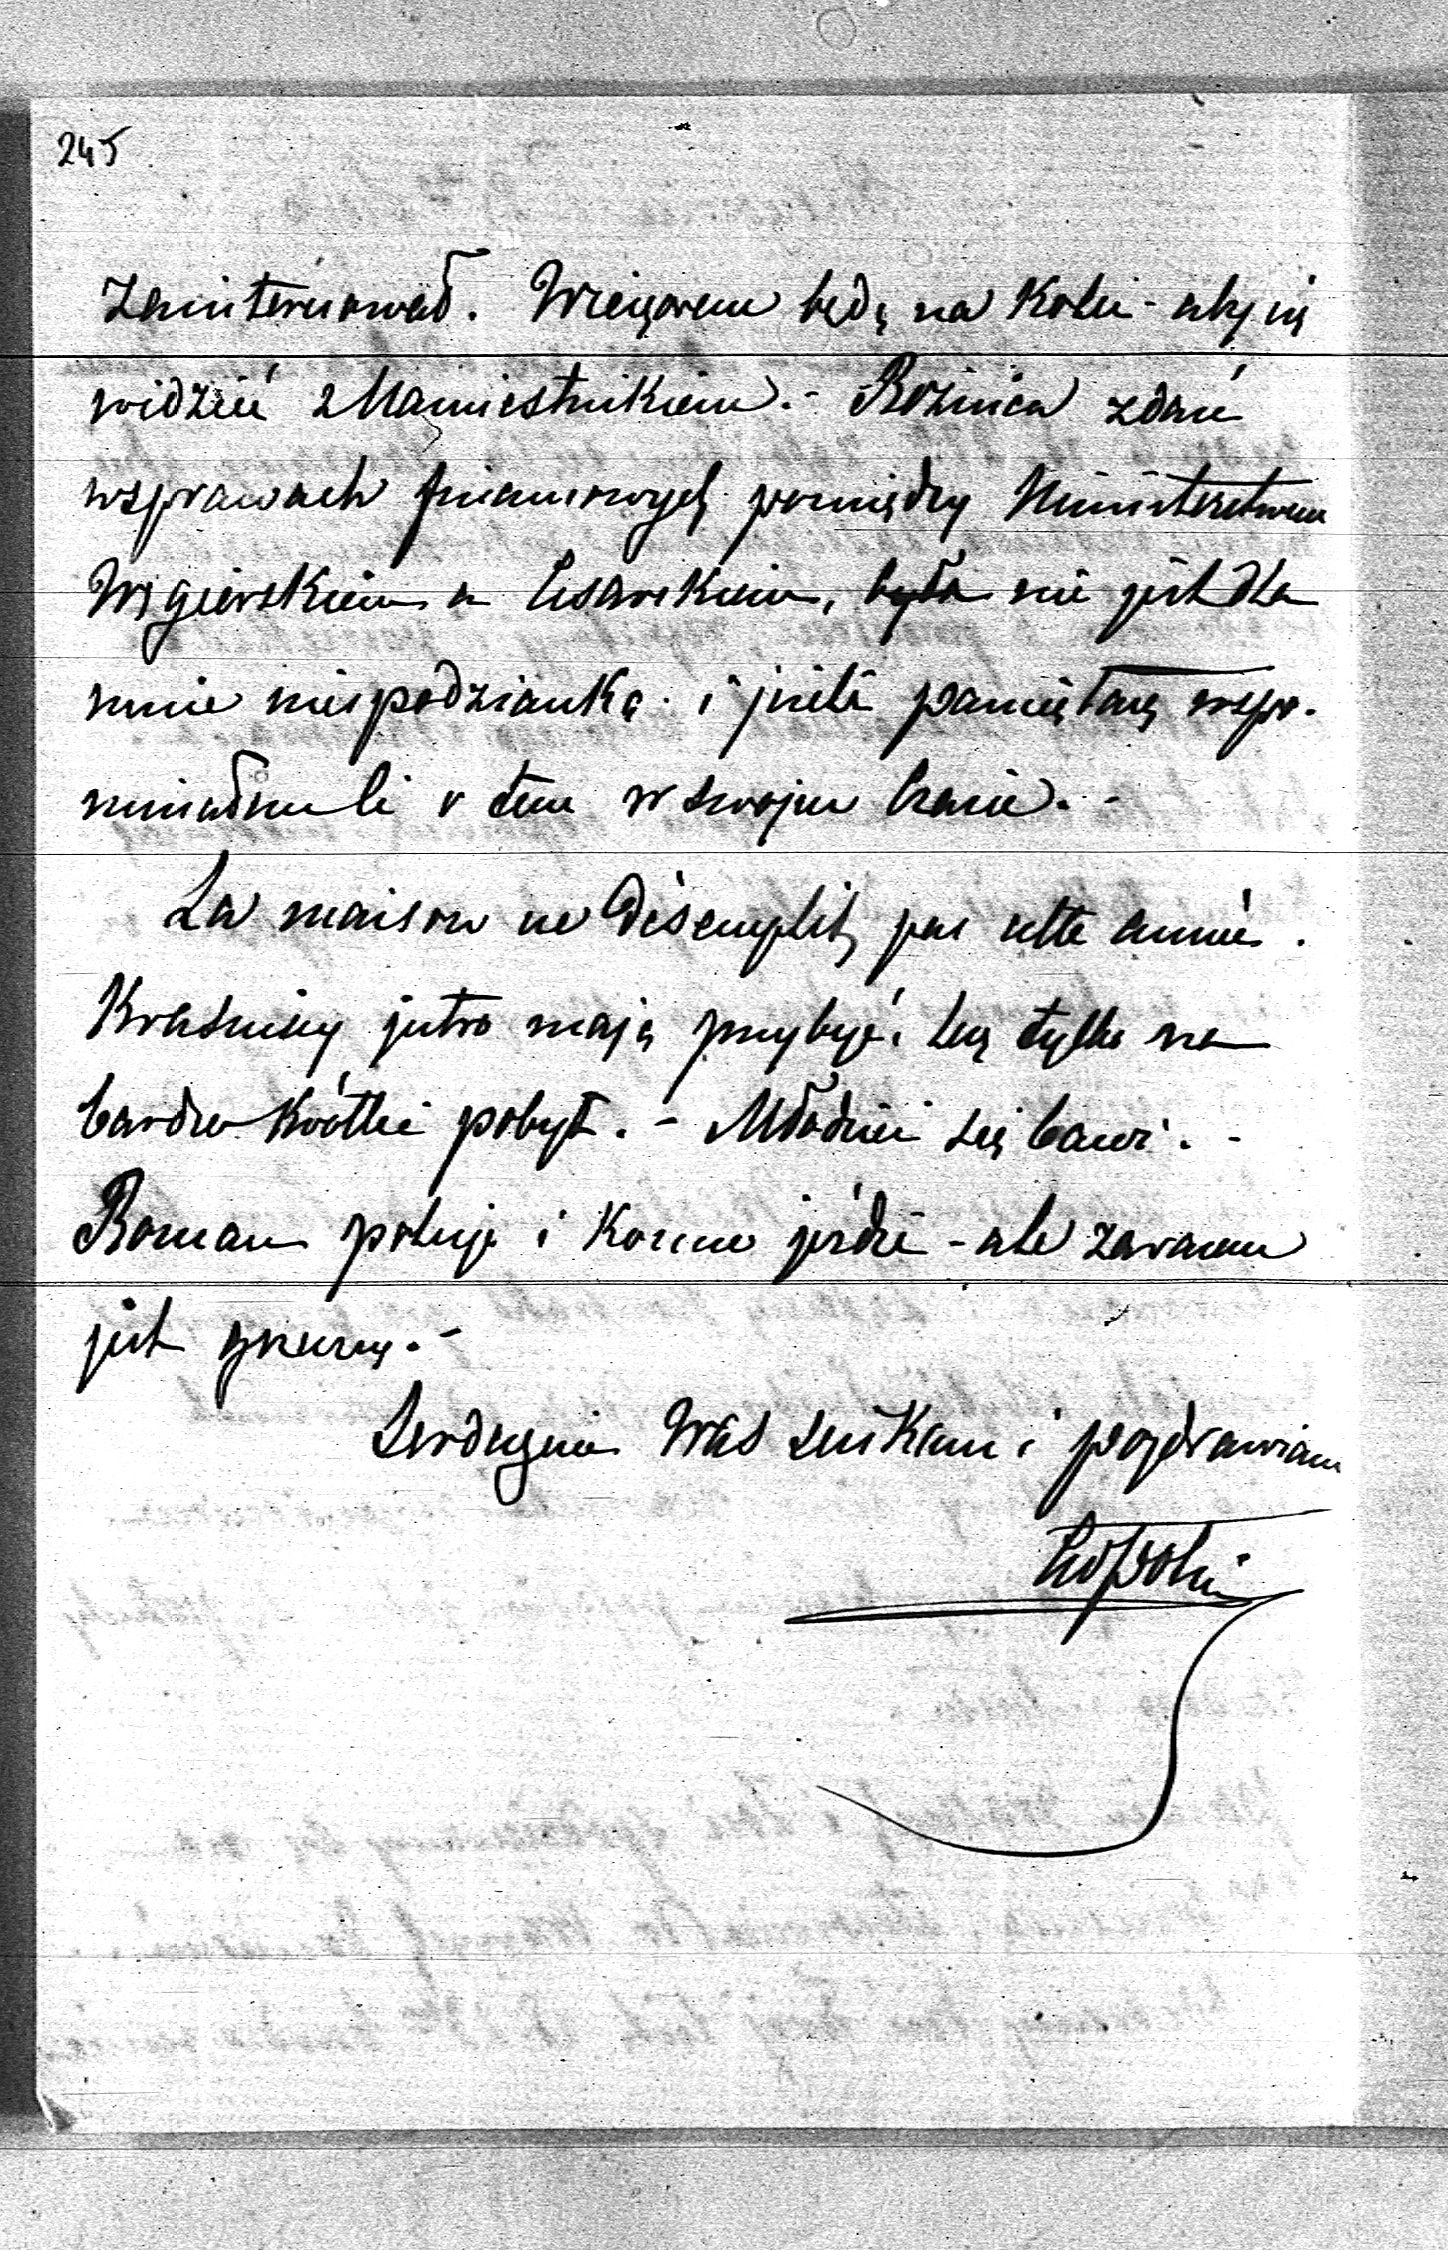 245
zainteresował. Wieczorem będę na Kolei - aby się
widzieć z Namiestnikiem. - Różnica zdań
w sprawach finansowych pomiędzy Ministerstwem
Węgierskiem a Cesarskiem, była nie jest dla
mnie niespodzianką i jeśli pamiętasz wspo-
minałem Ci o tem w swojem czasie. -
La maison ne désemplit pas cette année.
Krasiccy jutro mają przybyć, lecz tylko na
bardzo krótki pobyt. - Młodzież się bawi. -
Roman poluje i Konno jeździ - ale zarazem
jest
Serdecznie Was ściskam i pozdrawiam